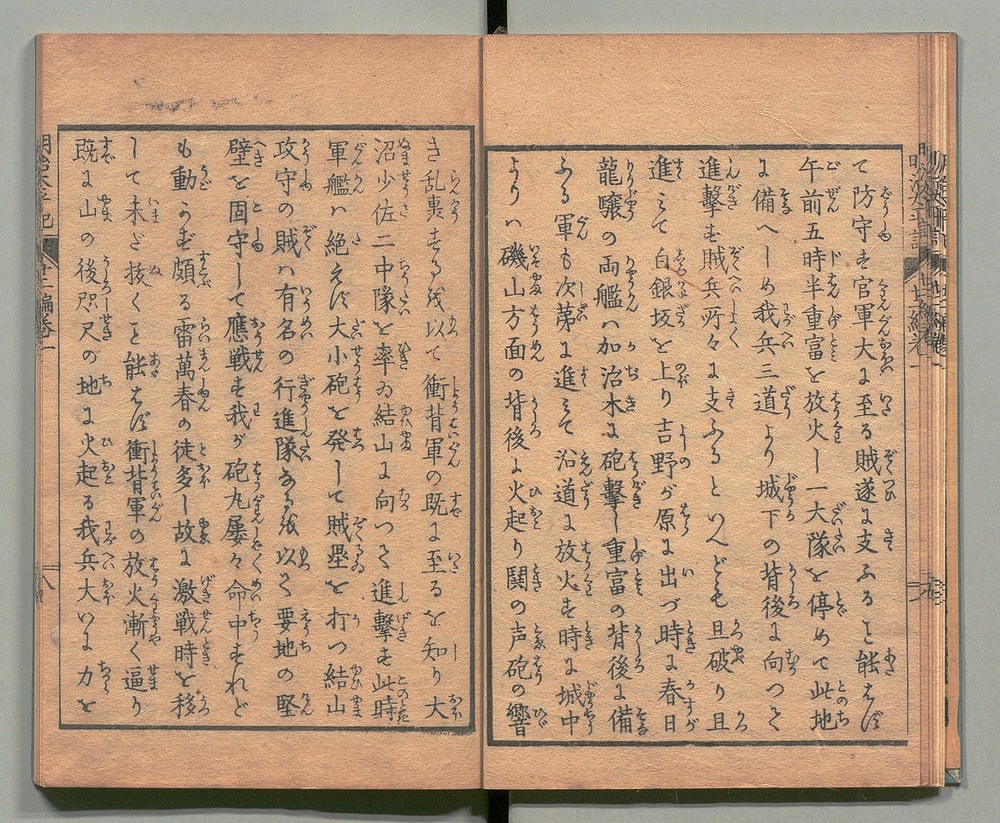 て防守す官軍大に至る賊遂に支ふること能はず
午前五時半重富を放火し一大隊を停めて此地
に備へしめ我兵三道より城下の背後に向つて
進撃す賊兵所々に支ふるといへども且破り且
進みて白銀坂を上り吉野が原に出づ時に春日
龍驤の両艦ハ加治木に砲撃し重富の背後に備
ふる軍も次第に進みて沿道に放火す時に城中
よりハ磯山方面の背後に火起り鬨の声砲の響
き乱裏するを以て衝背軍の既に至るを知り大
沼少佐二中隊を率ゐ結山に向つて進撃す此時
軍艦ハ絶えず大小砲を発して賊塁を打つ結山
攻守の賊ハ有名の行進隊なるを以て要地の堅
壁を固守して應戦す我が砲丸屡々命中すれど
も動かず頗る雷萬春の徒多し故に激戦時を移
して未だ抜くこと能はず衝背軍の放火漸く逼り
既に山の後咫尺の地に火起る我兵大いに力を
明治太平記 十二編巻一 八